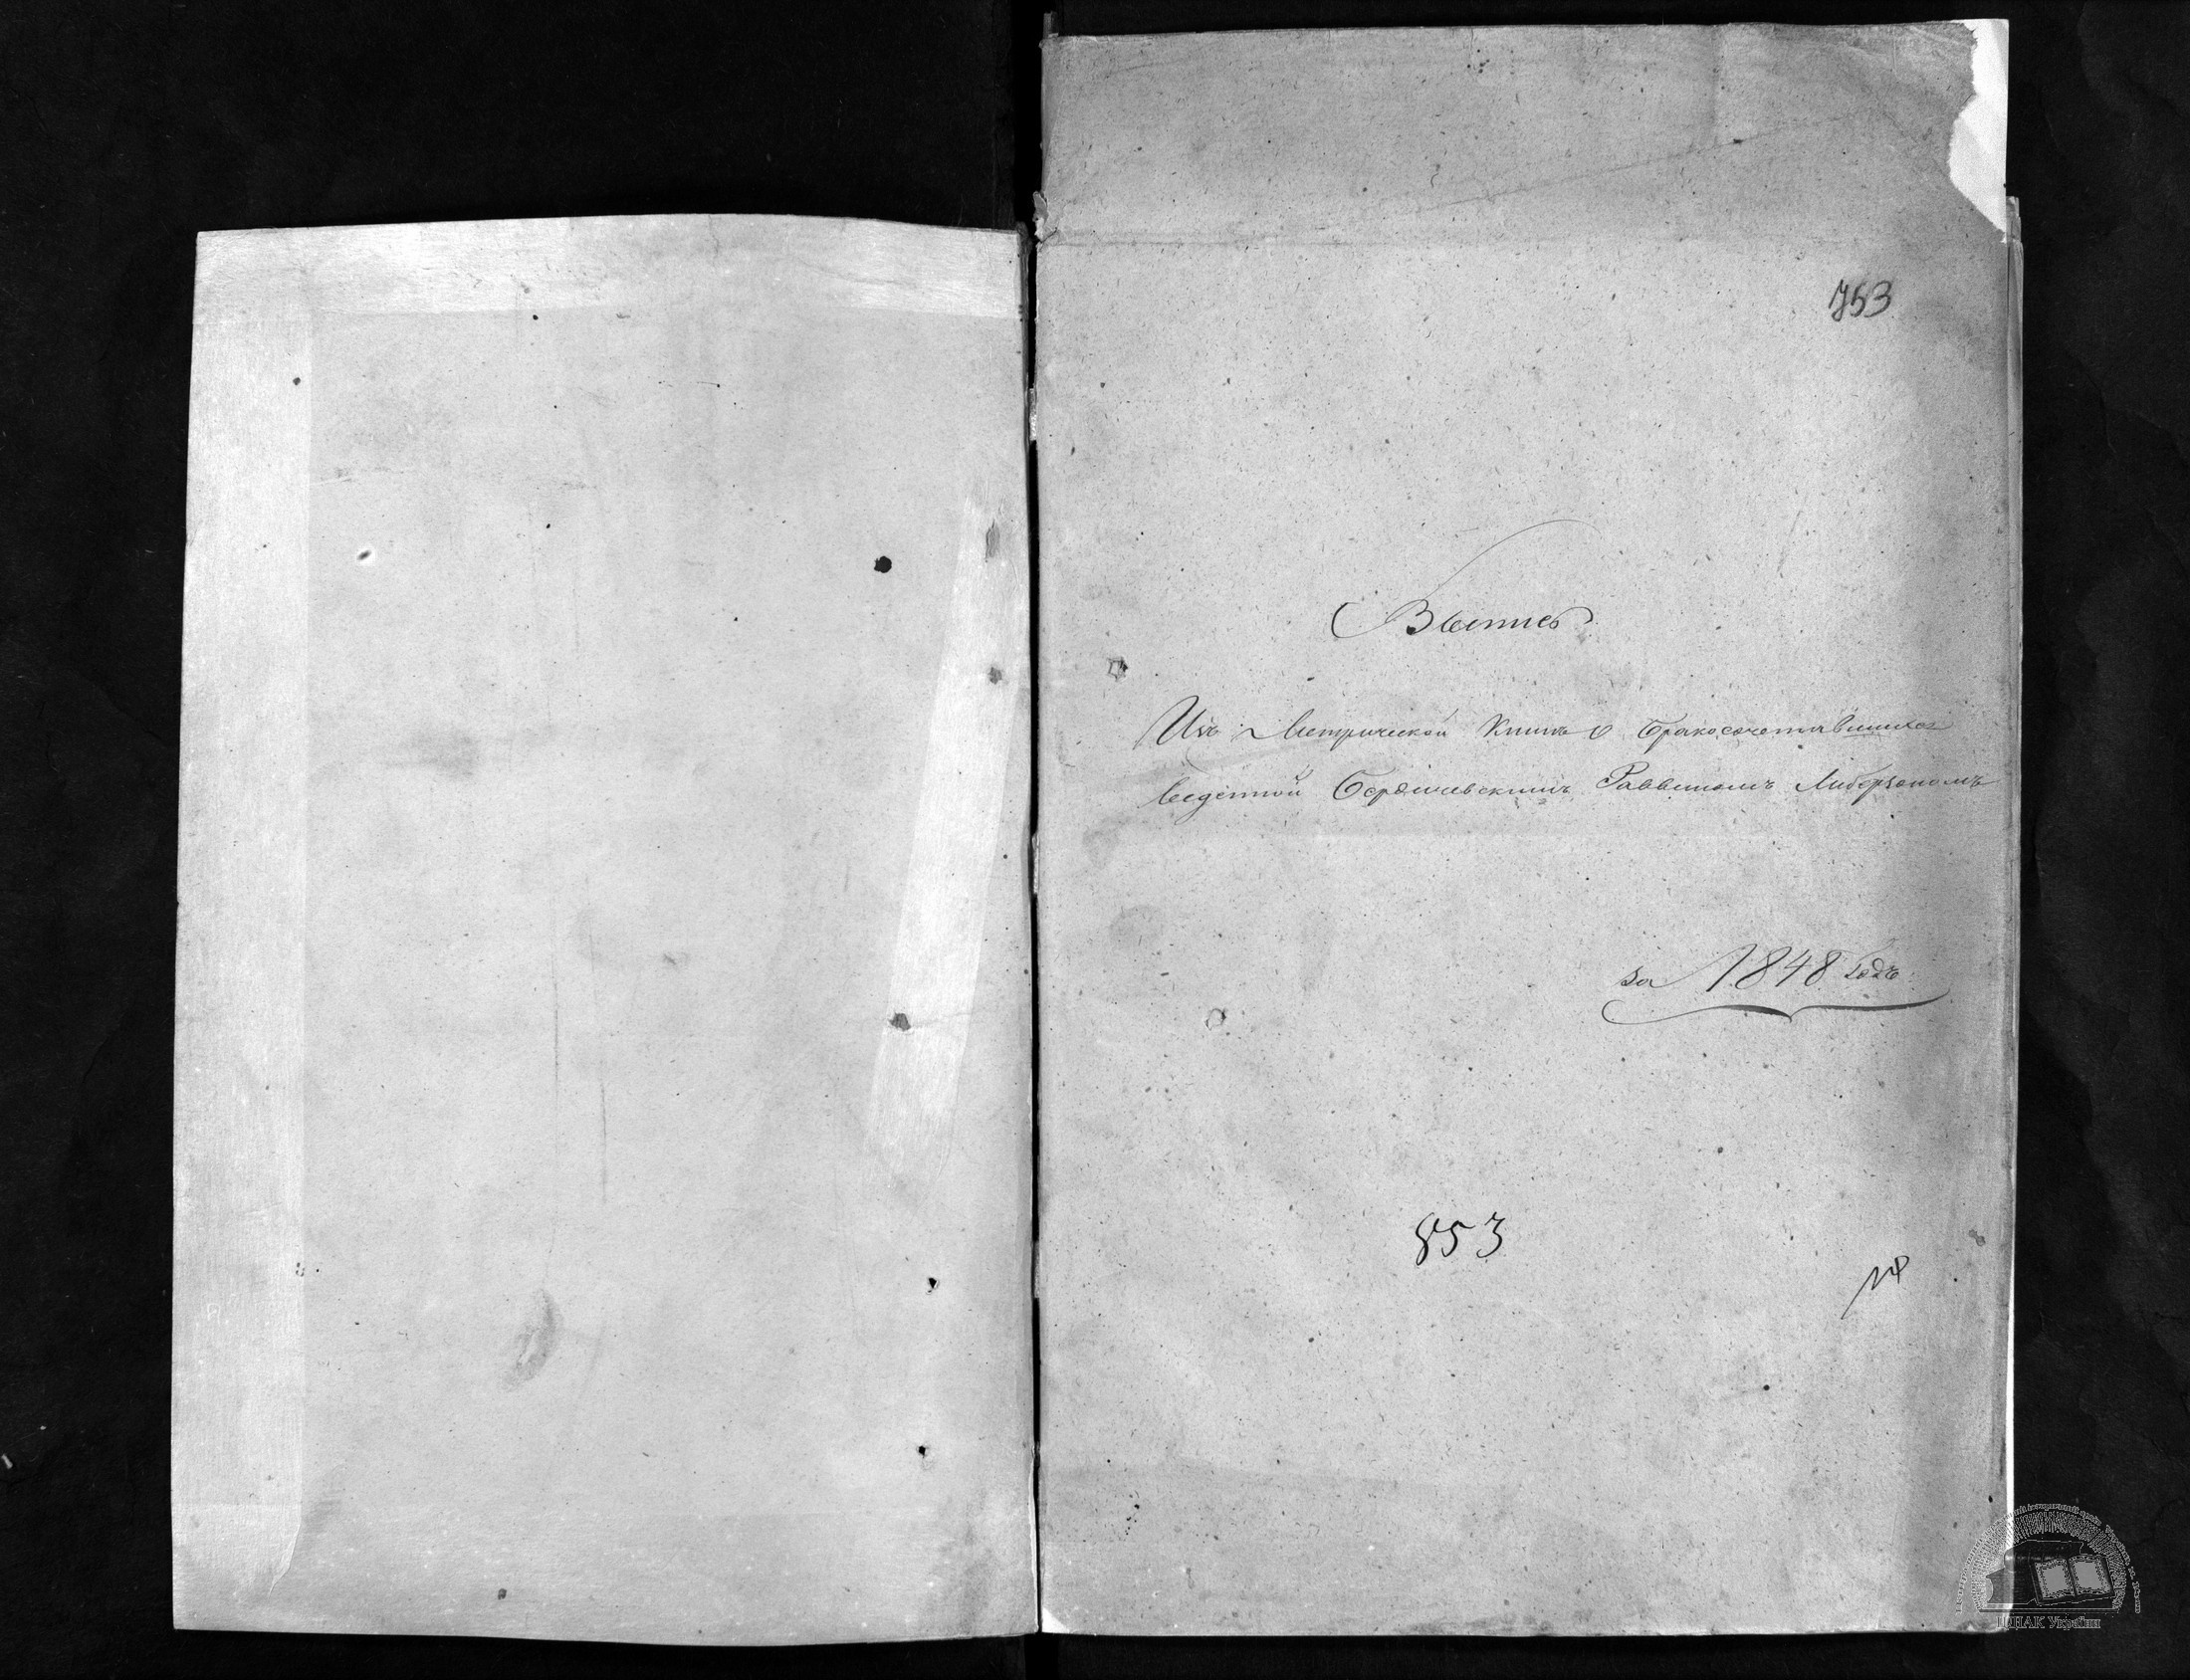 753
Выпись
Изъ Метрической Книги о бракосочетавшихся
веденной Бердичевскимъ Раввиномъ Либерзономъ
за 1848 годъ
853
ЦДІАК України